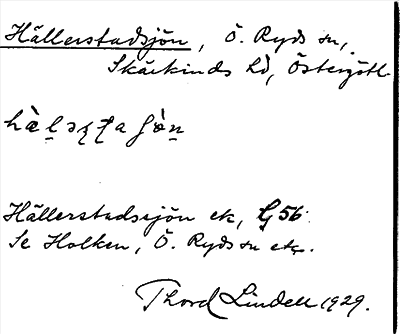 Hällerstadsjön, Ö. Ryds sn,
Skärkinds hd, Östergötl.
Hällerstadsjön ek, G 56.
Se Holken, Ö. Ryds sn etc.
Thord Lindell 1929.